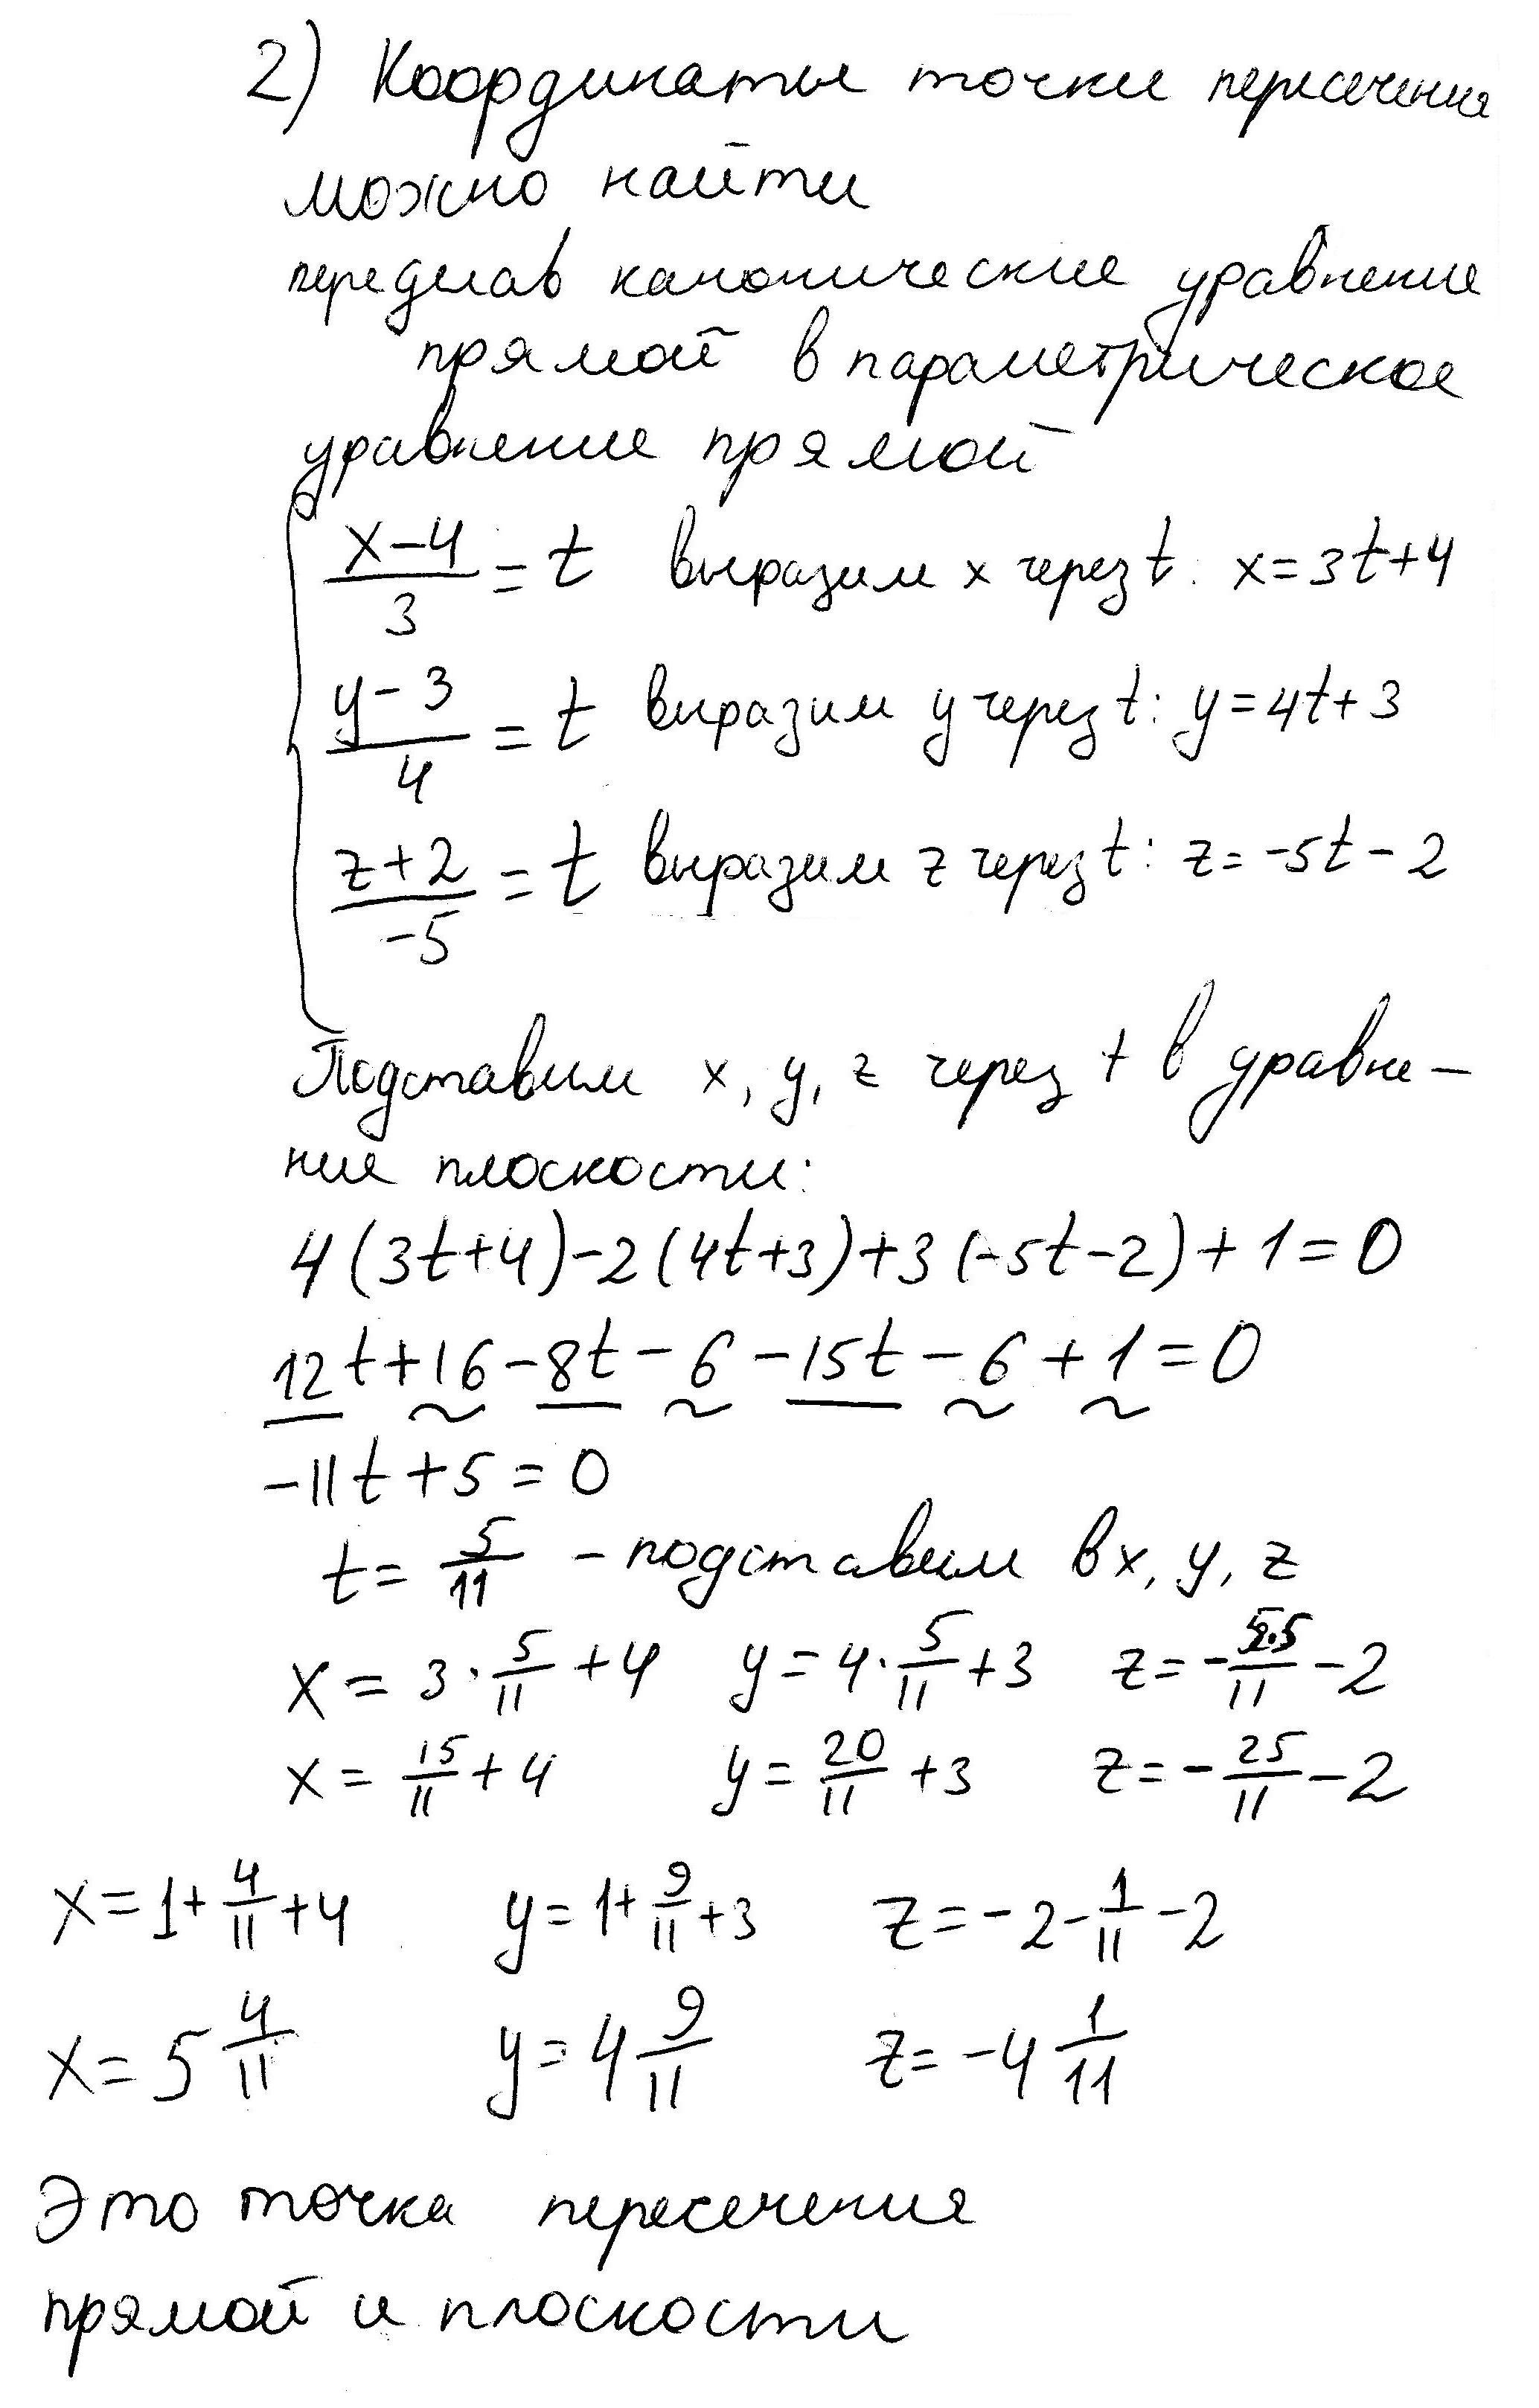 2) Координаты точки пересечения
можно найти
переделав канонические уравнение
прямой в параметрическое
уравнение прямой
(x-4)/3 = t выразим x через t: x=3t+4
(y-3)/4 = t выразим y через t: y=4t+3
(z+2)/-5 = t выразим z через t: z=-5t-2
Подставим x, y, z через t в уравне-
ние плоскости:
4(3t+4)-2(4t+3)+3(-5t-2)+1=0
12t+16-8t-6-15t-6+1=0
-11t+5=0
t= 5/11 - подставим в x, y, z
x = 3·5/11+4 y=4·5/11+3 z=-5·5/11-2
x = 15/11+4 y=20/11+3 z=-25/11-2
x=1+4/11+4 y=1+9/11+3 z=-2-1/11-2
x=5 4/11 y=4 9/11 z=-4 1/11
Это точка пересечения
прямой и плоскости